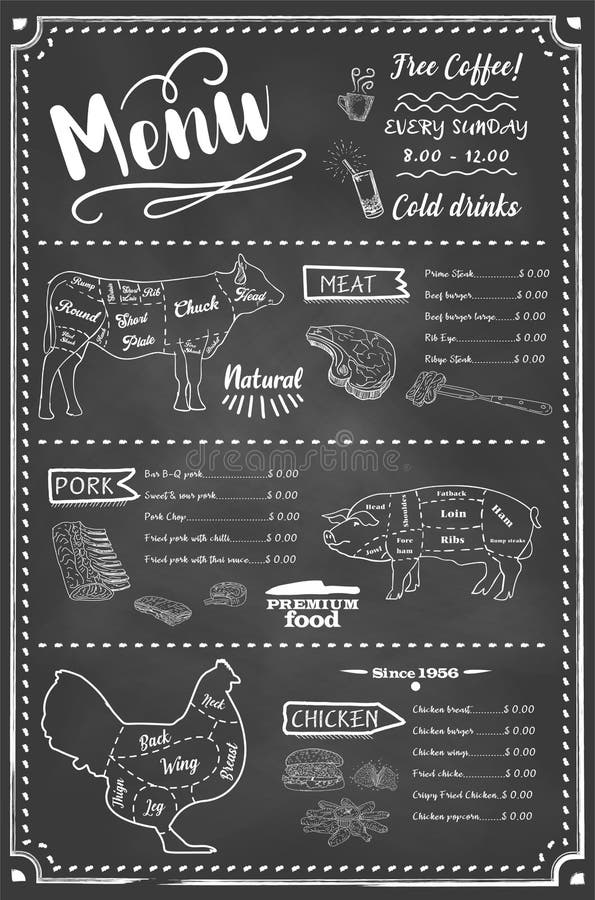 Menu
Free Coffee!
EVERY SUNDAY
8.00 - 12.00
Cold drinks
Rump
Rib
Round
Short
Plate
Chuck
Head
Natural
MEAT
Prime Steak............$ 0.00
Beef burger............$ 0.00
Beef burger large......$ 0.00
Rib Eye................$ 0.00
Ribye Steak............$ 0.00
PORK
Bar B-Q pork...........$ 0.00
Sweet & sour pork......$ 0.00
Pork Chop..............$ 0.00
Fried pork with chilli.$ 0.00
Fried pork with thai sauce...$ 0.00
PREMIUM
food
Head
Shoulders
Fatback
Loin
Ham
Jowl
Fore
ham
Ribs
Rump steaks
dreamstime
Since 1956
CHICKEN
Chicken breast.........$ 0.00
Chicken burger ........$ 0.00
Chicken wings..........$ 0.00
Fried chicke...........$ 0.00
Crispy Fried Chicken...$ 0.00
Chicken popcorn........$ 0.00
Neck
Back
Wing
Breast
Thign
Leg